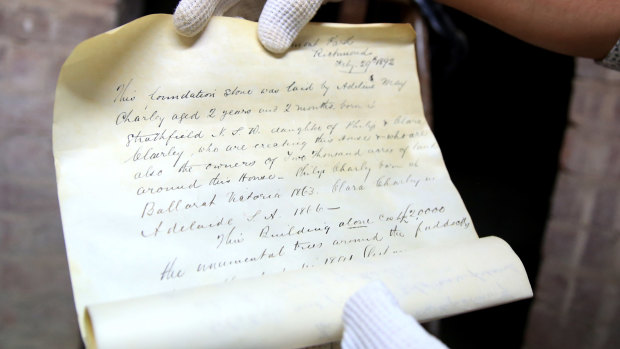 mont Park
Richmond
Feby. 29th 1892
This foundation stone was laid by Adeline May
Charley aged 2 years and 2 months born at
Strathfield N.S.W. daughter of Philip & Clara
Charley, who are creating this House & who are
also the owners of Two Thousand acres of land
around this House— Philip Charley born at
Ballarat Victoria 1863. Clara Charley in
Adelaide S.A. 1866—
This Building alone cost £20000
The ornamental trees around the paddocks
in 1891